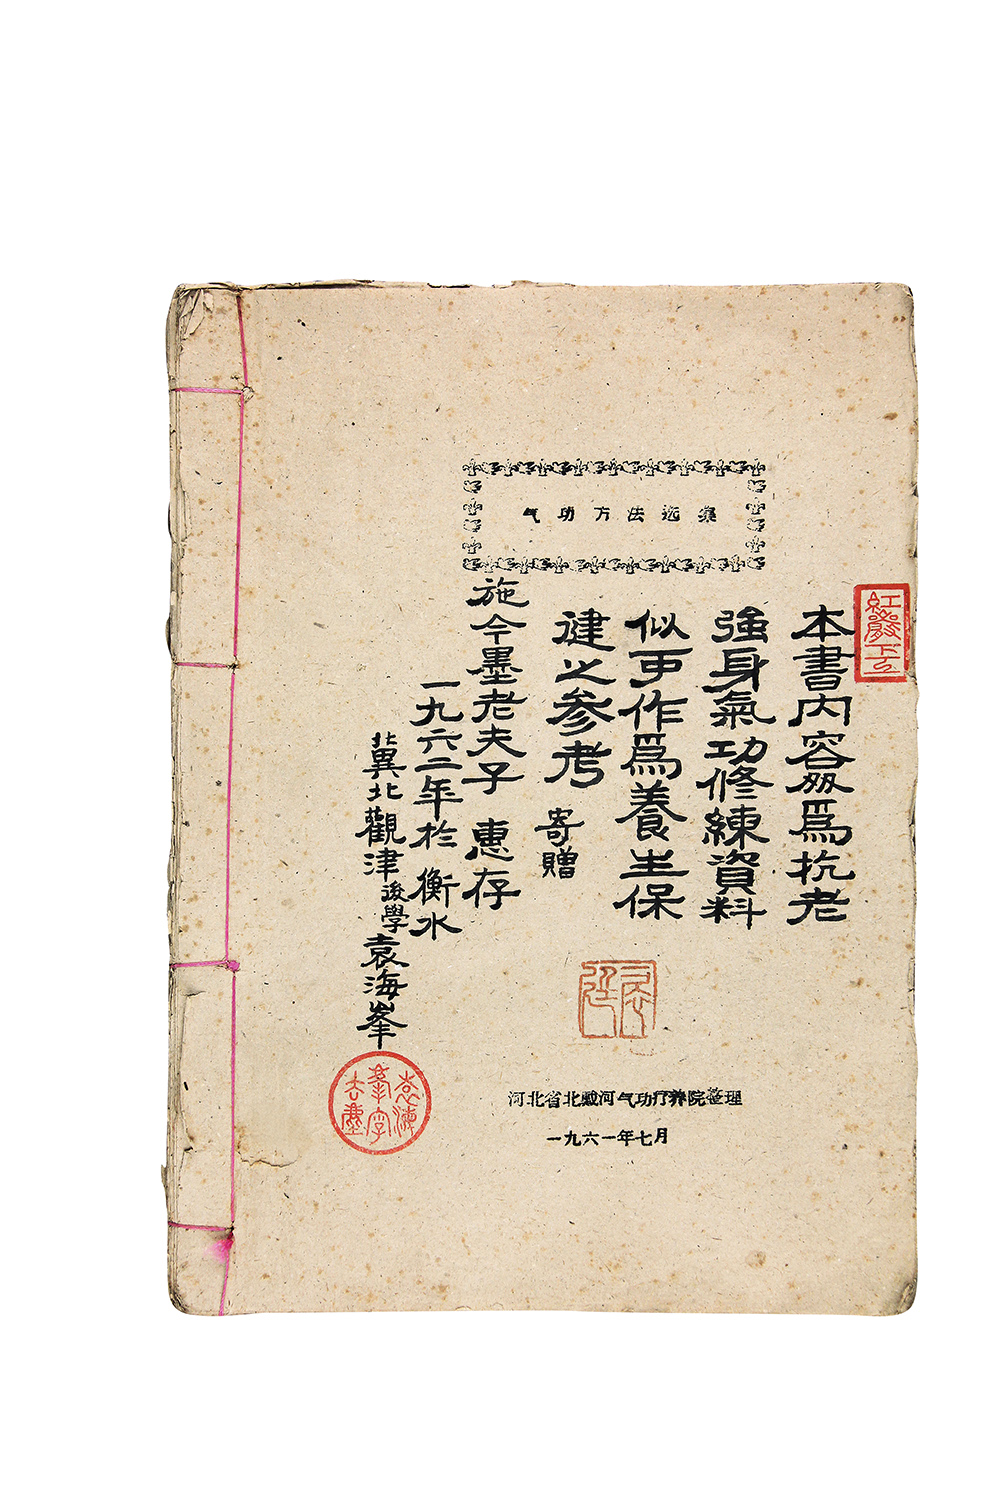 气功方法选集
本書内容多爲抗老
強身氣功修練資料
似可作爲養生保
健之参考 寄贈
施今墨老夫子 惠存
一九六二年於 衡水
冀北觀津後學袁海峯
河北省北戴河气功疗养院整理
一九六一年七月